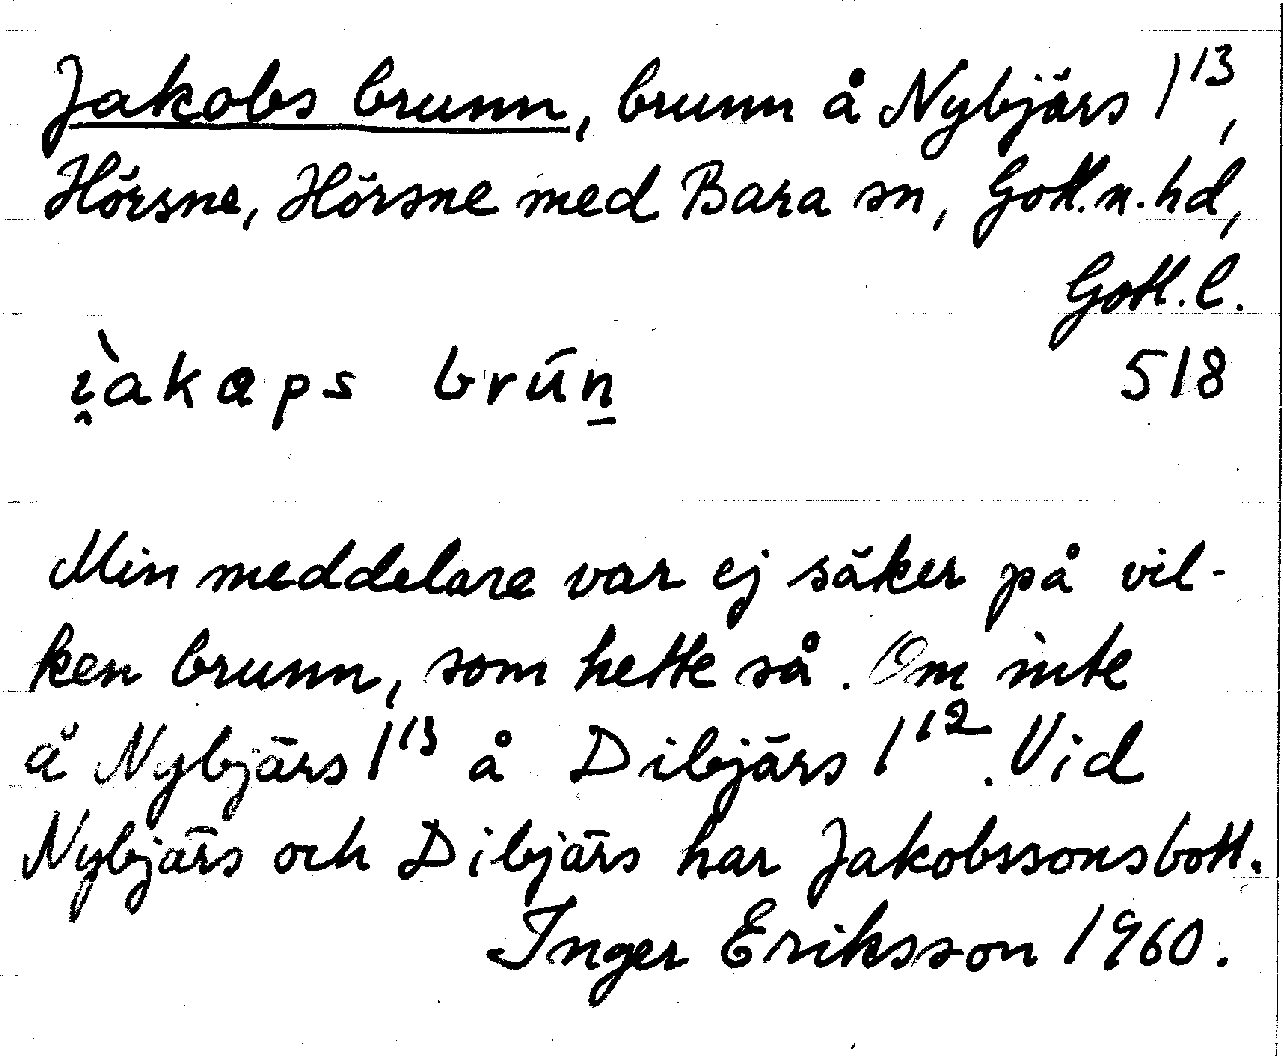 Jakobs brunn, brunn å Nybjärs 1¹³,
Hörsne, Hörsne med Bara sn, Gotl.n.hd,
Gotl.l.
ì̯akaps brūn̲ 518
Min meddelare var ej säker på vil-
ken brunn, som hette så. Om inte
å Nybjärs 1¹³ å Dibjärs 1¹². Vid
Nybjärs och Dibjärs har Jakobssons bott.
Inger Eriksson 1960.